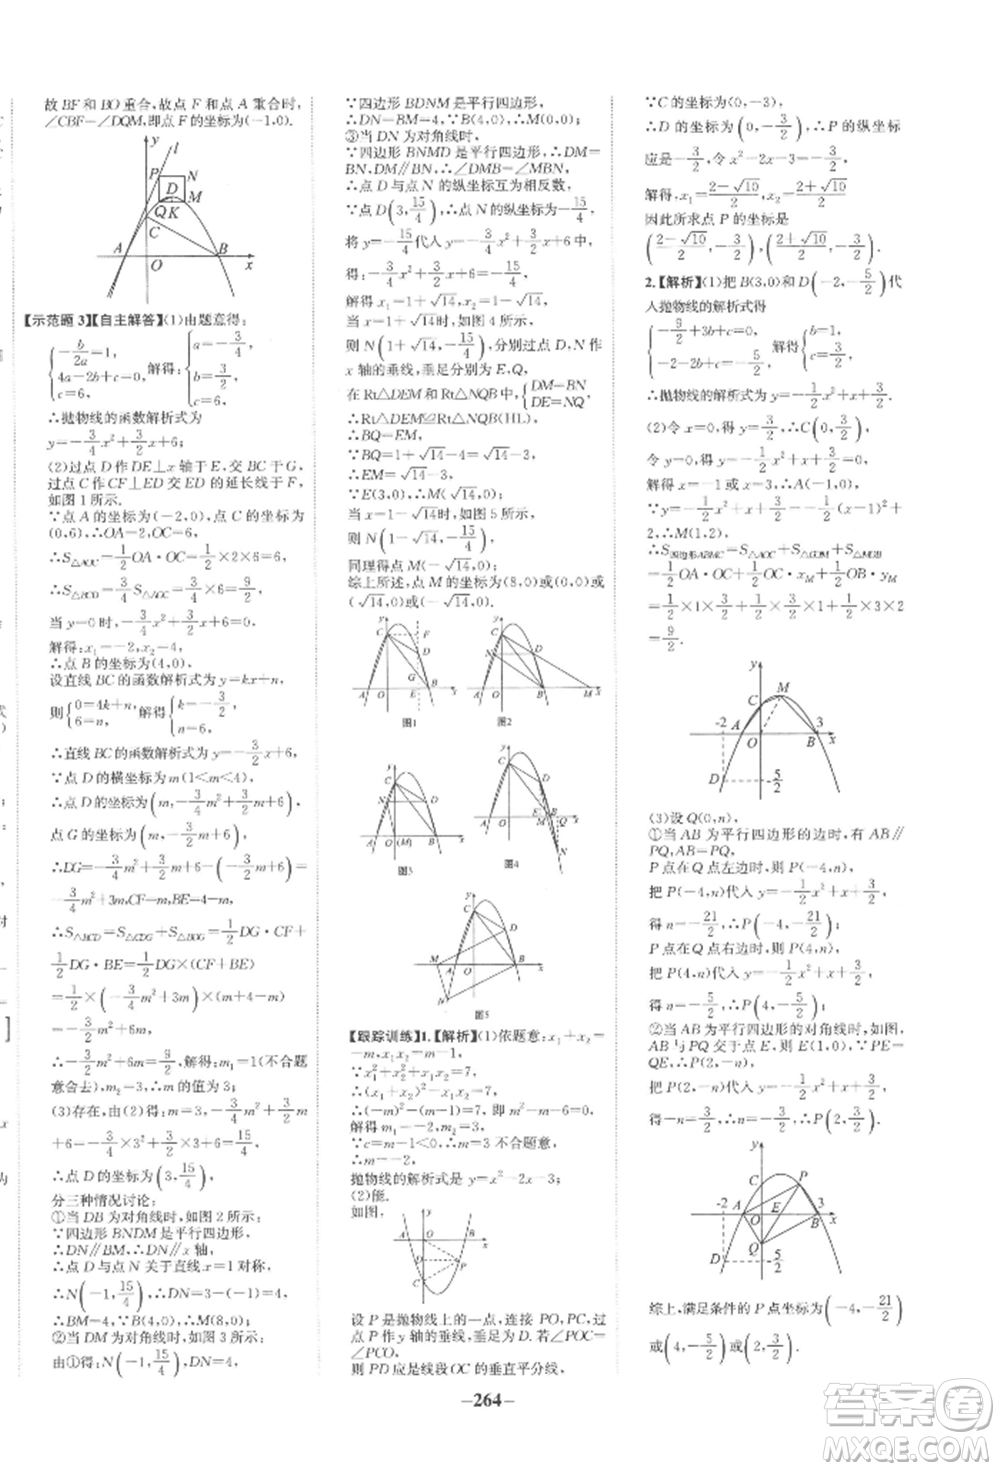 故 BF 和 BO 重合,故点 F 和点 A 重合时,
∠CBF=∠DQM,即点 F 的坐标为(-1,0).
y
l
P
N
D
M
Q
K
C
A
O
B
x
【示范题 3】【自主解答】(1)由题意得:
{-b/2a=1, 4a-2b+c=0, c=6, 解得:{a=-3/4, b=3/2, c=6,
∴抛物线的函数解析式为
y=-3/4x²+3/2x+6;
(2)过点 D 作 DE⊥x 轴于 E,交 BC 于 G,
过点 C 作 CF⊥ED 交 ED 的延长线于 F,
如图 1 所示.
∵点 A 的坐标为(-2,0),点 C 的坐标为
(0,6),∴OA=2,OC=6,
∴S△AOC=1/2OA·OC=1/2×2×6=6,
∴S△BCD=3/4S△AOC=3/4×6=9/2,
当 y=0 时,-3/4x²+3/2x+6=0,
解得:x₁=-2,x₂=4,
∴点 B 的坐标为(4,0),
设直线 BC 的函数解析式为 y=kx+n,
则{0=4k+n, 6=n, 解得{k=-3/2, n=6,
∴直线 BC 的函数解析式为 y=-3/2x+6,
∵点 D 的横坐标为 m(1<m<4),
∴点 D 的坐标为(m,-3/4m²+3/2m+6),
点 G 的坐标为(m,-3/2m+6),
∴DG=-3/4m²+3/2m+6-(-3/2m+6)=-
3/4m²+3m,CF=m,BE=4-m,
∴S△BCD=S△CDG+S△BDG=1/2DG·CF+
1/2DG·BE=1/2DG×(CF+BE)
=1/2×(-3/4m²+3m)×(m+4-m)
=-3/2m²+6m,
∴-3/2m²+6m=9/2,解得:m₁=1(不合题
意舍去),m₂=3,∴m 的值为 3;
(3)存在,由(2)得:m=3,-3/4m²+3/2m
+6=-3/4×3²+3/2×3+6=15/4,
∴点 D 的坐标为(3,15/4),
分三种情况讨论:
①当 DB 为对角线时,如图 2 所示,
∵四边形 BNDM 是平行四边形,
∴DN∥BM,∴DN∥x 轴,
∴点 D 与点 N 关于直线 x=1 对称,
∴N(-1,15/4),∴DN=3-(-1)=4,
∴BM=4,∵B(4,0),∴M(8,0);
②当 DM 为对角线时,如图 3 所示,
由①得:N(-1,15/4),DN=4,
∵四边形 BDNM 是平行四边形,
∴DN=BM=4,∵B(4,0),∴M(0,0);
③当 DN 为对角线时,
∵四边形 BNMD 是平行四边形,∴DM=
BN,DM∥BN,∴∠DMB=∠MBN,
∴点 D 与点 N 的纵坐标互为相反数,
∵点 D(3,15/4),∴点 N 的纵坐标为-15/4,
将 y=-15/4代入 y=-3/4x²+3/2x+6 中,
得:-3/4x²+3/2x+6=-15/4,
解得:x₁=1+√14,x₂=1-√14,
当 x=1+√14时,如图 4 所示,
则 N(1+√14,-15/4),分别过点 D,N 作
x 轴的垂线,垂足分别为 E,Q,
在 Rt△DEM 和 Rt△NQB 中,{DM=BN DE=NQ,
∴Rt△DEM≌Rt△NQB(HL),
∴BQ=EM,
∵BQ=1+√14-4=√14-3,
∴EM=√14-3,
∵E(3,0),∴M(√14,0);
当 x=1-√14时,如图 5 所示,
则 N(1-√14,-15/4),
同理得点 M(-√14,0);
综上所述,点 M 的坐标为(8,0)或(0,0)或
(√14,0)或(-√14,0).
图1
图2
图3
图4
图5
【跟踪训练】1.【解析】(1)依题意:x₁+x₂=
-m,x₁x₂=m-1,
∵x₁²+x₂²+x₁x₂=7,
∴(x₁+x₂)²-x₁x₂=7,
∴(-m)²-(m-1)=7,即 m²-m-6=0,
解得 m₁=-2,m₂=3,
∵c=m-1<0,∴m=3 不合题意,
∴m=-2,
抛物线的解析式是 y=x²-2x-3;
(2)能.
如图,
y
A
O
B
x
D
P
C
设 P 是抛物线上的一点,连接 PO,PC,过点
P 作 y 轴的垂线,垂足为 D.若∠POC=
∠PCO,
则 PD 应是线段 OC 的垂直平分线,
∵C 的坐标为(0,-3),
∴D 的坐标为(0,-3/2),∴P 的纵坐标
应是-3/2;令 x²-2x-3=-3/2,
解得,x₁=(2-√10)/2,x₂=(2+√10)/2
因此所求点 P 的坐标是
((2-√10)/2,-3/2),((2+√10)/2,-3/2).
2.【解析】(1)把 B(3,0)和 D(-2,-5/2)代
入抛物线的解析式得
{-9/2+3b+c=0, -2-2b+c=-5/2, 解得{b=1, c=3/2,
∴抛物线的解析式为 y=-1/2x²+x+3/2.
(2)令 x=0,得 y=3/2,∴C(0,3/2),
令 y=0,得-1/2x²+x+3/2=0,
解得 x=-1 或 x=3,∴A(-1,0),
∵y=-1/2x²+x+3/2=-1/2(x-1)²+
2,∴M(1,2),
∴S四边形ABMC=S△AOC+S△COM+S△MOB
=1/2OA·OC+1/2OC·xM+1/2OB·yM=
1/2×1×3/2+1/2×3/2×1+1/2×3×2
=9/2.
y
C
M
-2
A
O
3
B
x
D
-5/2
(3)设 Q(0,n),
①当 AB 为平行四边形的边时,有 AB∥
PQ,AB=PQ,
P 点在 Q 点左边时,则 P(-4,n),
把 P(-4,n)代入 y=-1/2x²+x+3/2,
得 n=-21/2,∴P(-4,-21/2),
P 点在 Q 点右边时,则 P(4,n),
把 P(4,n)代入 y=-1/2x²+x+3/2,
得 n=-5/2,∴P(4,-5/2);
②当 AB 为平行四边形的对角线时,如图,
AB 与 PQ 交于点 E,则 E(1,0),∵PE=
QE,∴P(2,-n),
把 P(2,-n)代入 y=-1/2x²+x+3/2,
得-n=3/2,∴n=-3/2,∴P(2,3/2).
y
P
-2
A
O
E
3
B
x
Q
D
-5/2
综上,满足条件的 P 点坐标为(-4,-21/2)
或(4,-5/2)或(2,3/2).
-264-
答案圈
MXQE.COM